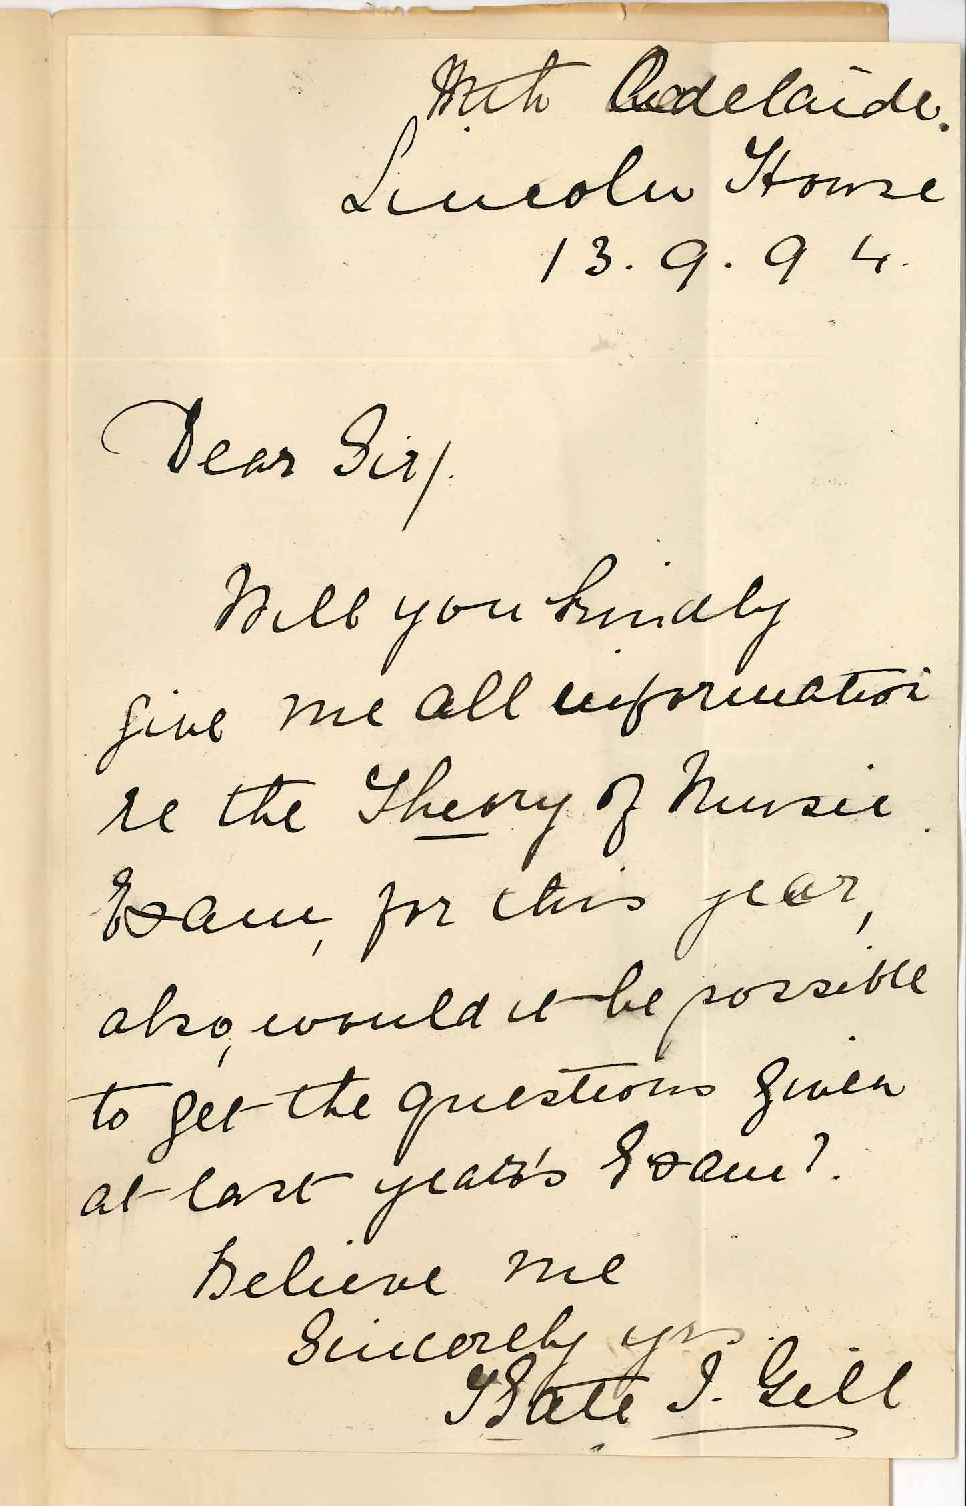 Nth Adelaide.
Lincoln House
13.9.94.
Dear Sir/.
Will you kindly
give me all information
re the Theory of Music
Exam, for this year,
also, would it be possible
to get the questions given
at last year's Exam?
Believe me
Sincerely yrs.
Kate I. Gill